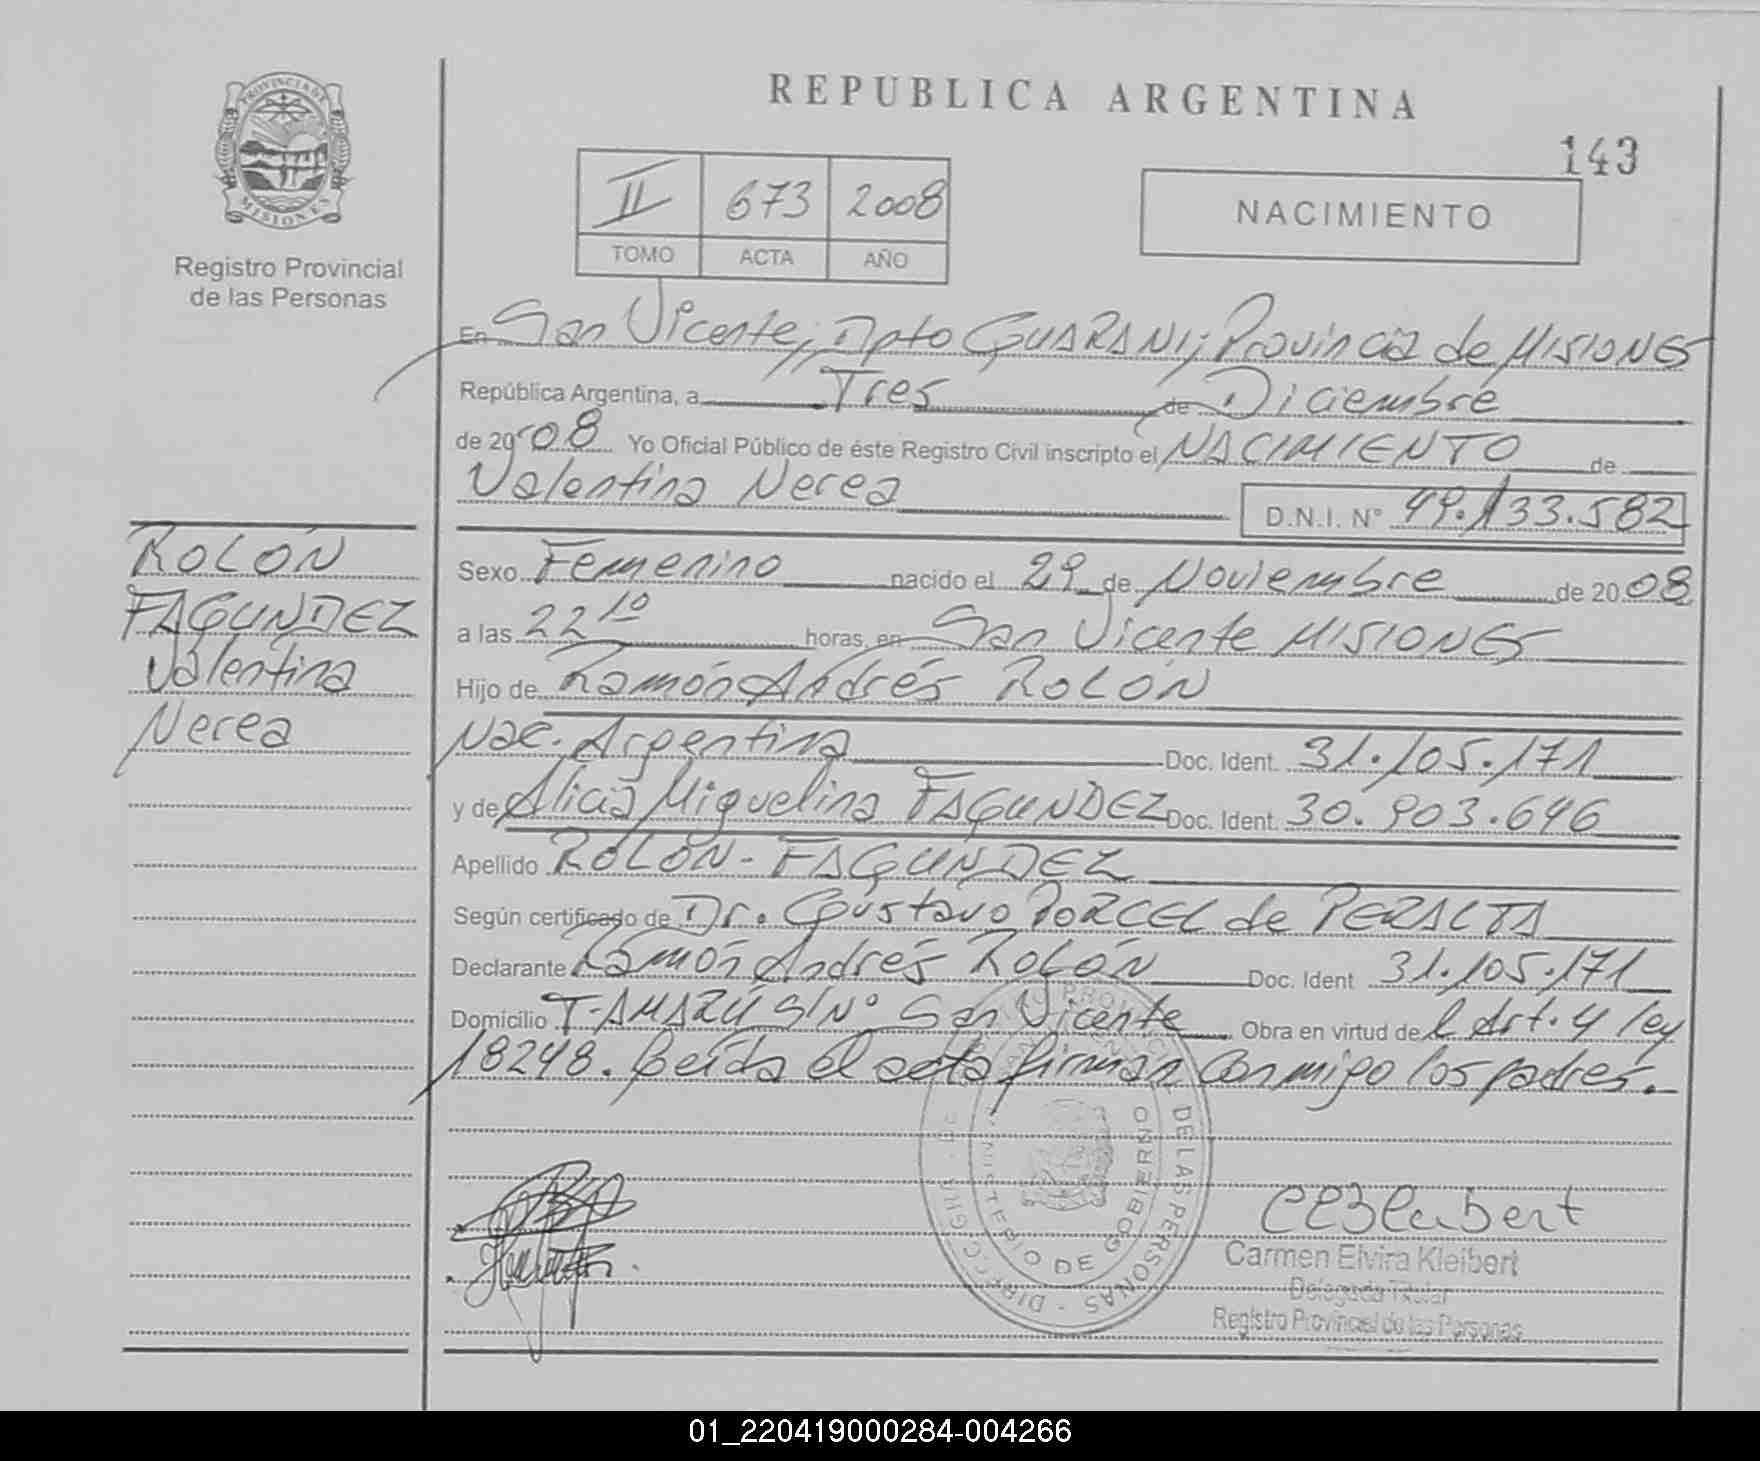 REPUBLICA ARGENTINA
143
PROVINCIA DE
MISIONES
Registro Provincial
de las Personas
II 673 2008
TOMO ACTA AÑO
NACIMIENTO
En San Vicente, Dpto GUARANI; Provincia de MISIONES
República Argentina, a Tres de Diciembre
de 2008 Yo Oficial Público de éste Registro Civil inscripto el NACIMIENTO de
Valentina Nerea D.N.I. Nº 49.133.582
ROLÓN
FAGUNDEZ
Valentina
Nerea
Sexo Femenino nacido el 29 de Noviembre de 2008
a las 22 10 horas, en San Vicente MISIONES
Hijo de Ramón Andrés ROLÓN
Nac. Argentina Doc. Ident. 31.105.171
y de Alicia Miguelina FAGUNDEZ Doc. Ident. 30.903.646
Apellido ROLÓN - FAGUNDEZ
Según certificado de Dr. Gustavo PORCEL de PERALTA
Declarante Ramón Andrés ROLÓN Doc. Ident 31.105.171
Domicilio T. AMARÚ S/Nº San Vicente Obra en virtud de l Art. 4 ley
18248. Leída el acta firman conmigo los padres.
DE LAS PERSONAS - DIREC
MINISTERIO DE GOBIERNO
CEKleibert
Carmen Elvira Kleibert
Delegada Titular
Registro Provincial de las Personas
01_220419000284-004266